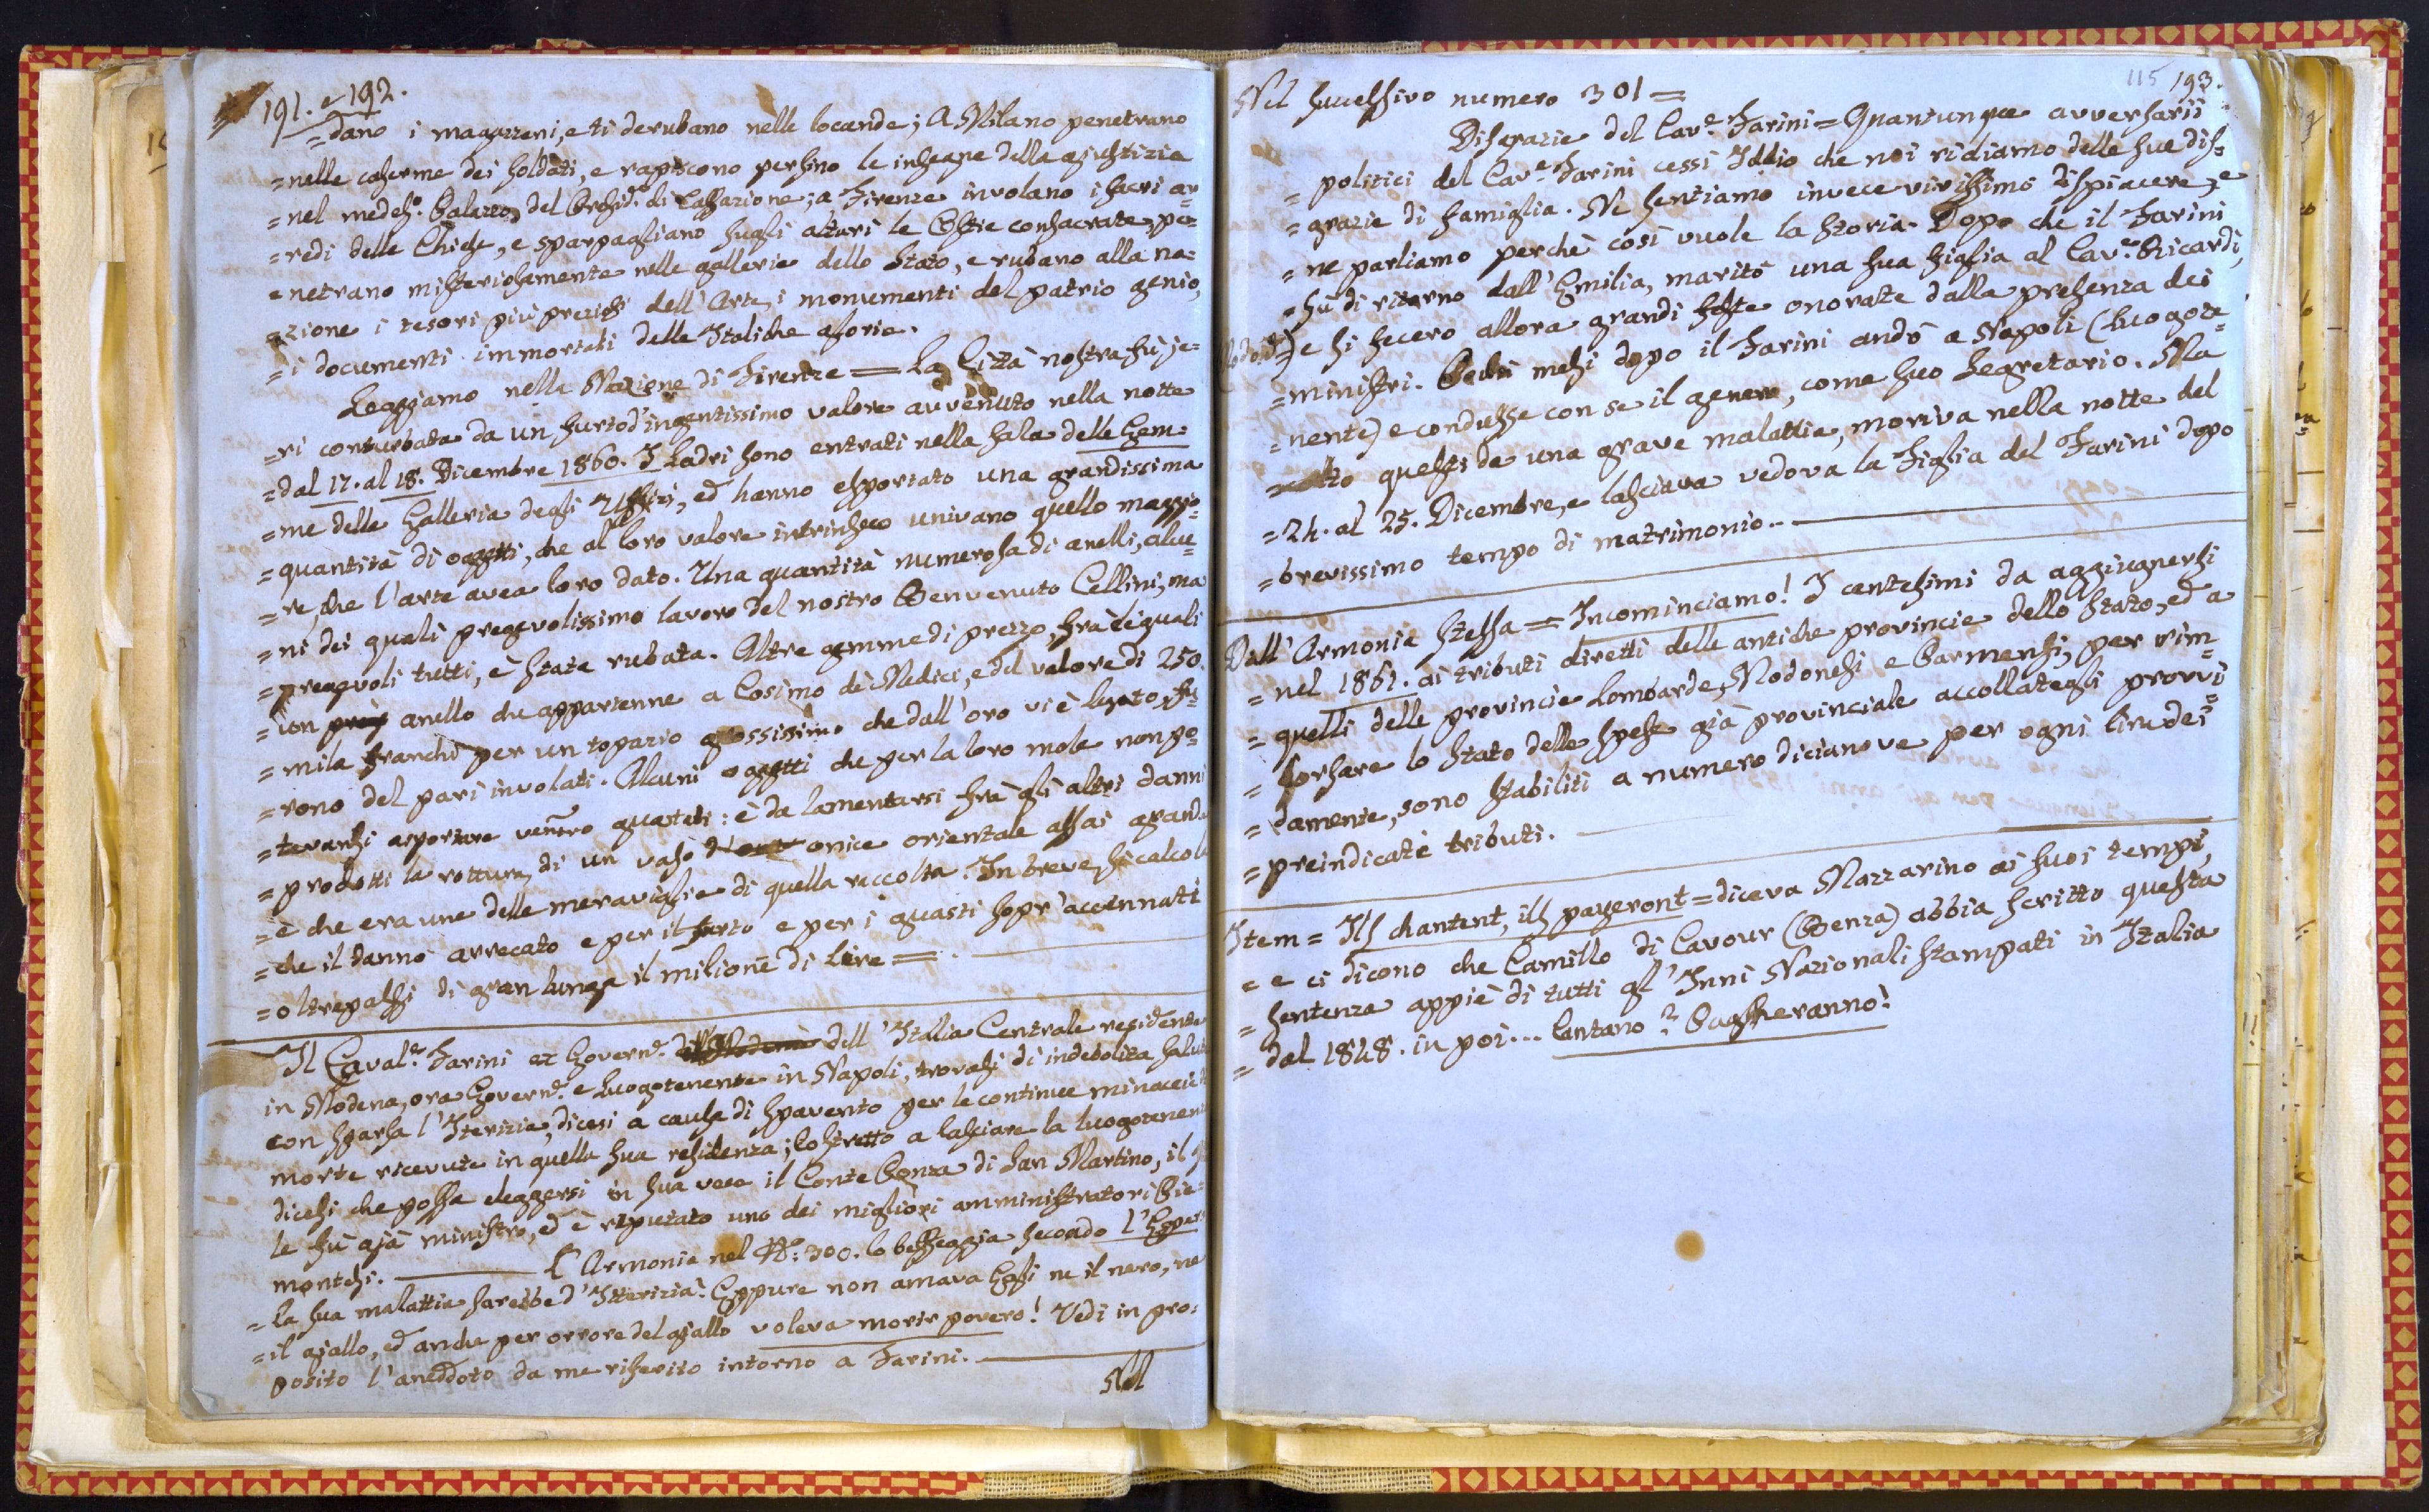 191. e 192.
=dano i magazzeni, e ti derubano nelle locande; A Milano penetrano
=nelle caserme dei soldati, e rapiscono persino le insegne della giustizia
=nel medes.o Palazzo del di Cassazione; a Firenze involano i sacri ar=
=redi delle Chiese, e sparpagliano sugli altari le Ostie consacrate, pe=
=netrano misteriosamente nelle gallerie dello Stato, e rubano alla na=
=zione i tesori più preziosi dell'Arte, i monumenti del patrio genio,
=i documenti immortali delle Italiche glorie.
Leggiamo nella Nazione di Firenze = La Città nostra fù je=
=ri conturbata da un furto d'ingentissimo valore avvenuto nella notte
=dal 17. al 18. Dicembre 1860. I Ladri sono entrati nella sala delle Gem=
=me della Galleria degli Uffizi, ed hanno esportato una grandissima
=quantità di oggetti, che al loro valore intrinseco univano quello maggio=
=re, che l'arte avea loro dato. Una quantità numerosa di anelli, alcu=
=ni dei quali pregevolissimo lavoro del nostro Benvenuto Cellini, ma
=pregevoli tutti, è stata rubata. Altre gemme di prezzo, frà le quali
=un anello che appartenne a Cosimo dè Medici, e del valore di 250.
=mila franchi per un topazio grossissimo che dall'oro vi è legato, fu=
=rono del pari involati. Alcuni oggetti che per la loro mole non po=
=tevansi asportare vennero guastati: è da lamentarsi frà gli altri danni
=prodotti la rottura di un vaso d' onice orientale assai grande
=è che era una delle meraviglie di quella raccolta. In breve, si calcola
=che il danno arrecato e per il furto e per i guasti sopr'accennati
=oltrepassi di gran lunga il milione di Lire =.
Il Caval.e Farini ex Govern.e dell'Italia Centrale residente
in Modena, ora Govern.e e Luogotenente in Napoli, trovasi di indebolita salute
con sparsa l'Iterizia, dicesi a causa di spavento per le continue minaccie di
morte ricevute in quella sua residenza; Costretto a lasciare la luogotenenza
dicesi che possa eleggersi in sua vece il Conte Ponza di San Martino, il qua
le fù già ministro, ed è reputato uno dei migliori amministratori Pie=
montesi. L'Armonia nel N.o 300. lo beffeggia secondo l'Esper=
=La sua malattia sarebbe d'Itterizia! Eppure non amava Egli nè il nero, nè
=il giallo, ed anche per orrore del giallo voleva morir povero! Vedi in pro=
posito l'aneddoto da me riferito intorno a Farini.
Nel
115 193.
Nel successivo numero 301 =
Disgrazie del Cav.e Farini = Quantunque avversarii
=politici del Cav.e Farini cessi Iddio che noi ridiamo delle sue dis=
=grazie di famiglia. Ne sentiamo invece vivissimo dispiacere, e
=ne parliamo perchè così vuole la storia. Dopo che il Farini
=fù di ritorno dall'Emilia, maritò una sua figlia al Cav.e Riccardi,
=e si fecero allora grandi feste onorate dalla presenza dei
=ministri. Pochi mesi dopo il Farini andò a Napoli (Luogote=
=nente) e condusse con se il genero, come suo Segretario. Ma
=tto questi da una grave malattia, moriva nella notte del
=24. al 25. Dicembre, e lasciava vedova la Figlia del Farini dopo
=brevissimo tempo di matrimonio.
Dall'Armonia stessa = Incominciamo! I centesimi da aggiugnersi
=nel 1861. ai tributi diretti delle antiche provincie dello Stato, ed a
=quelli delle provincie Lombarde, Modonesi e Parmensi, per rim=
=borsare lo Stato delle spese già provinciale accollategli provvi=
=damente, sono stabiliti a numero dicianove per ogni lira dei
=preindicati tributi.
Item = Ils chantent, ils payeront = diceva Mazzarino ai suoi tempi,
=e ci dicono che Camillo di Cavour (Benza) abbia scritto questa
=sentenza appiè di tutti gl'Inni Nazionali stampati in Italia
=dal 1848. in poi... Cantano? Pagheranno!